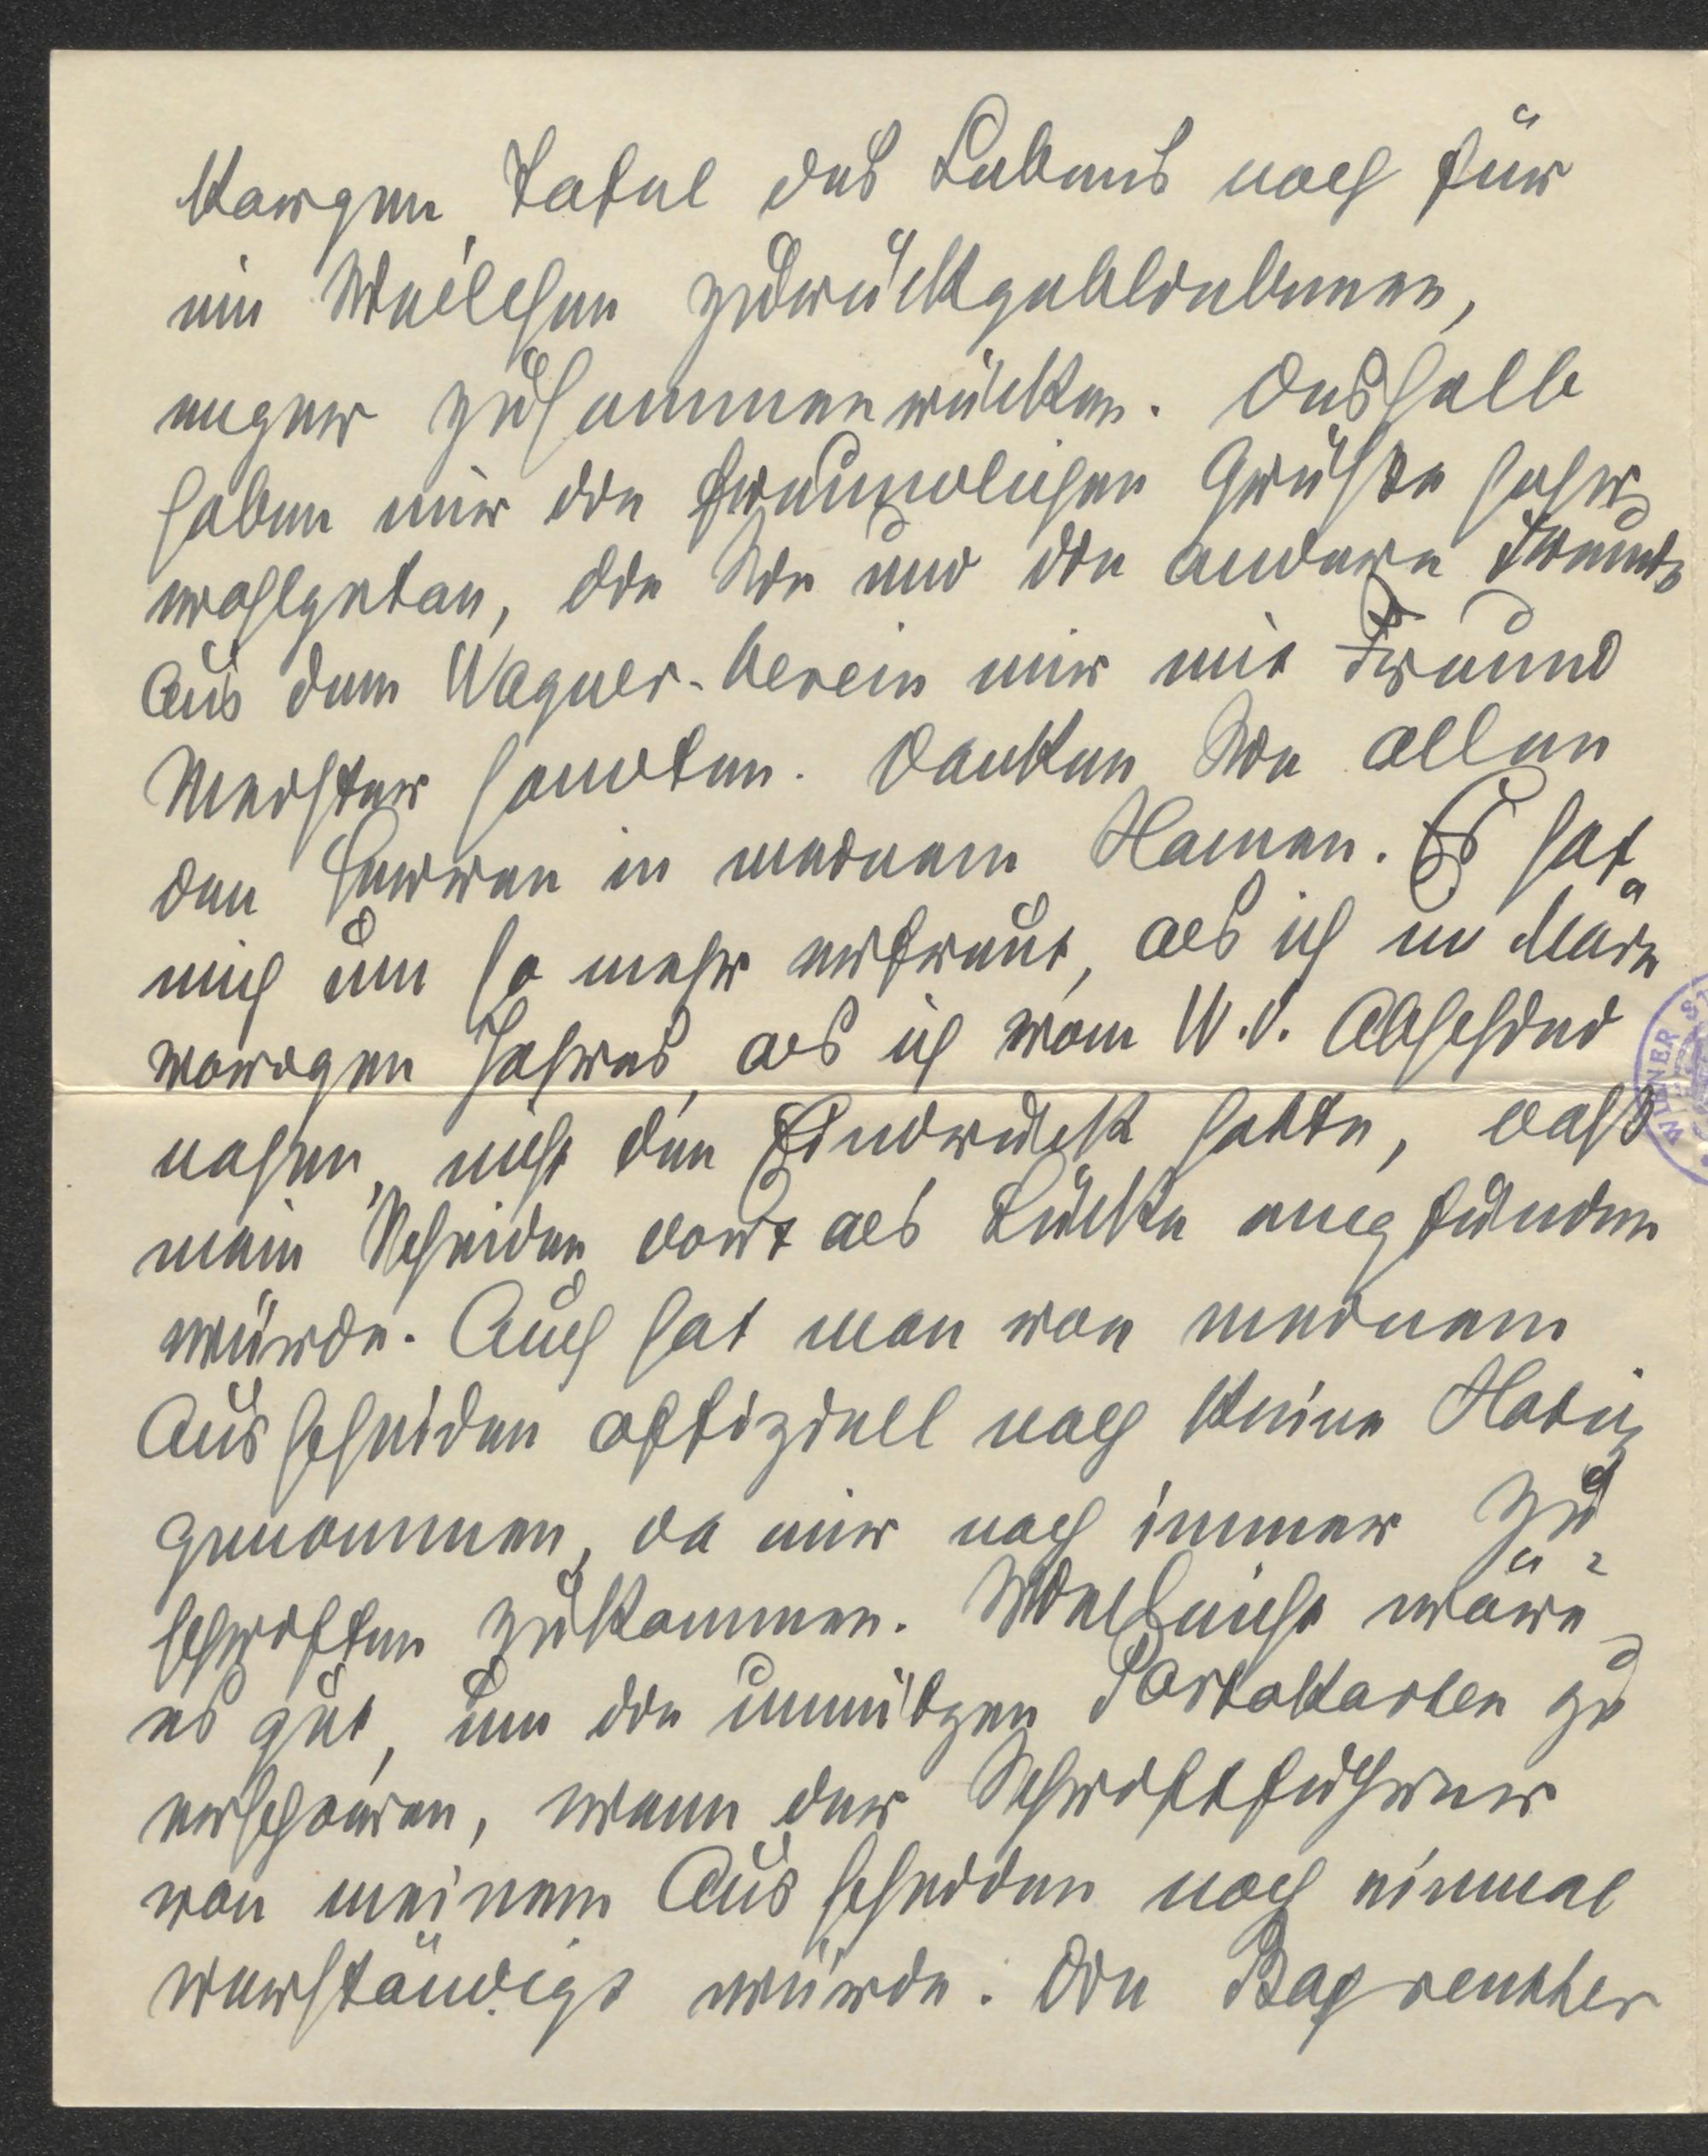 kargen Tafel des Lebens noch für
ein Weilchen zurückgebliebenen,
enger zusammenrücken. Deshalb
haben mir die freundlichen Grüße sehr
wohlgetan, die Sie und die andern Freunde
aus dem Wagner-Verein mir mit Freund
Meister sandten. Danken Sie allen
den Herren in meinem Namen. Es hat
mich um so mehr erfreut, als ich im März
vorigen Jahres, als ich vom W.V. Abschied
nahm, nicht den Eindruck hatte, daß
mein Scheiden dort als Lücke empfunden
würde. Auch hat man von meinem
Ausscheiden offiziell noch keine Notiz
genommen, da mir noch immer Zu-
schriften zukommen. Vielleicht wäre
es gut, um die unnützen Portokosten zu
ersparen, wenn der Schriftführer
von meinem Ausscheiden noch einmal
verständigt würde. Die Bayreuther
WIENER ST